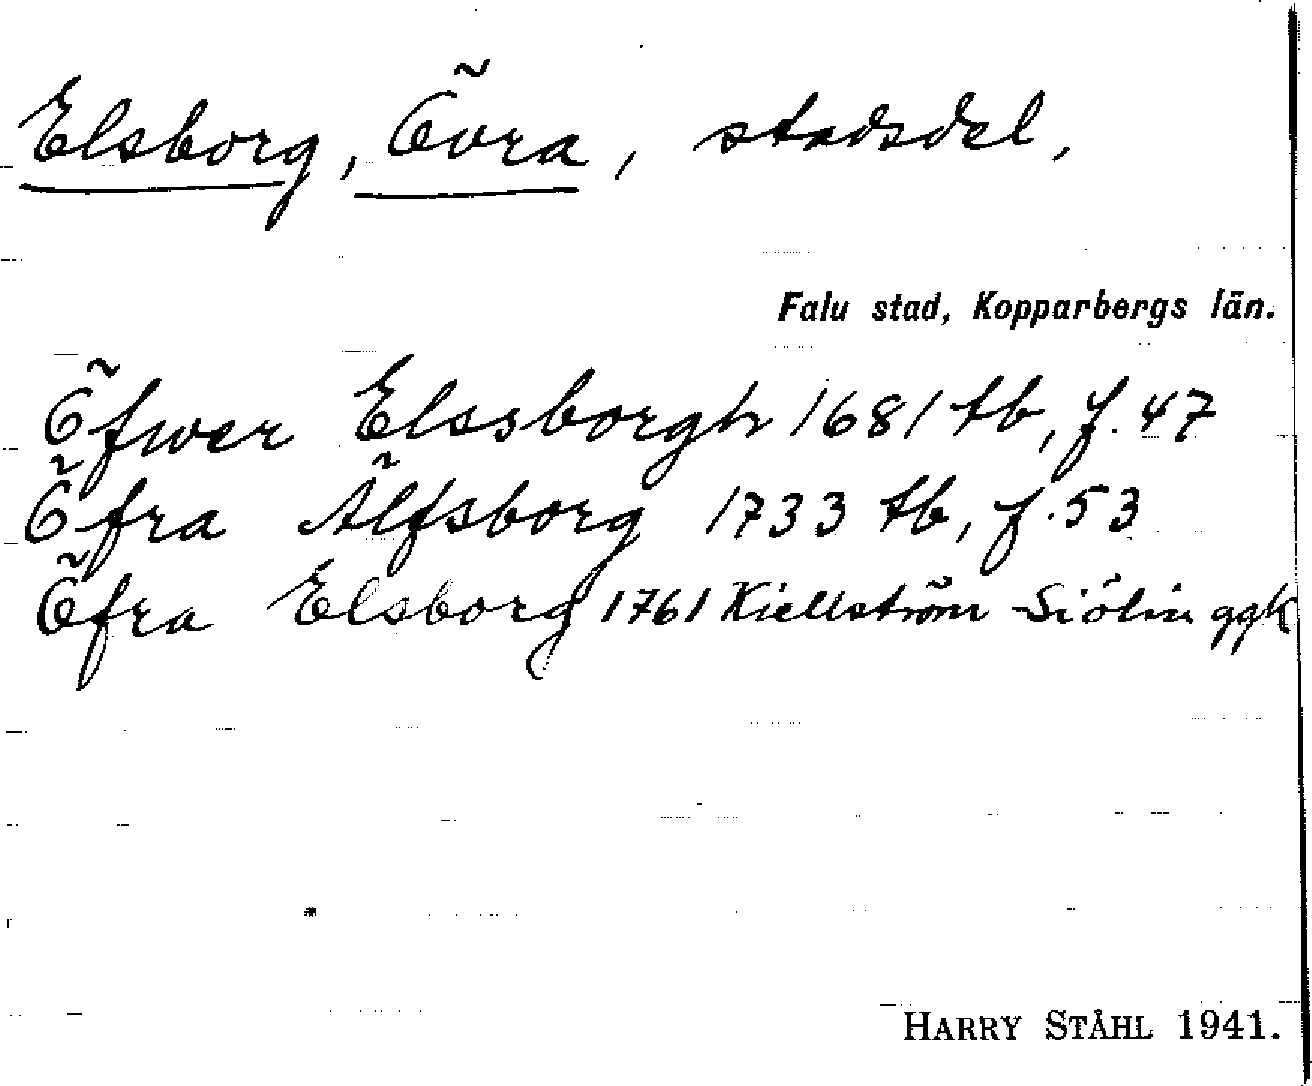 Elsborg, Övra, stadsdel,
Falu stad, Kopparbergs län.
Öfwer Elssborgh 1681 tb, f. 47
Öfra Älfsborg 1733 tb, f. 53
Öfra Elsborg 1761 Kiellström Siölin ggk
HARRY STÅHL 1941.